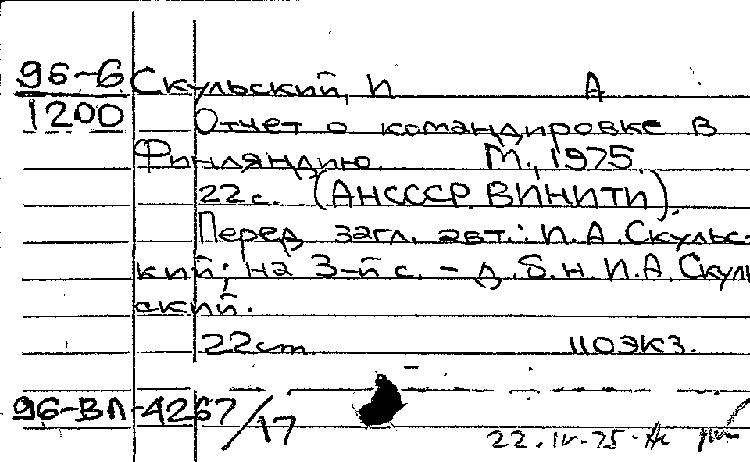 96-6 Скульский, И А
1200 Отчет о командировке в
Финляндию. М., 1975.
22 с. (АНСССР. ВИНИТИ).
Перед загл. авт.: И.А. Скульс-
кий; на 3-й с. – д.б.н. И.А. Скуль
ский.
22ст 110экз.
96-ВЛ-4267/17
22.IV-75